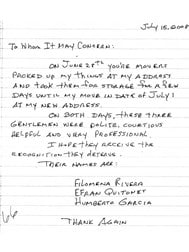 July 15, 2008
To Whom It May Concern:
On June 28th you're movers
packed up my things at my address
and took them for storage for a few
days until my move in date of July 1
at my new address.
On both days, these three
gentlemen were polite, courtious
helpful and very professional.
I hope they receive the
recognition they deserve.
Their names are:
Filomena Rivera
Efran Quitonet
Humberto Garcia
Thank Again